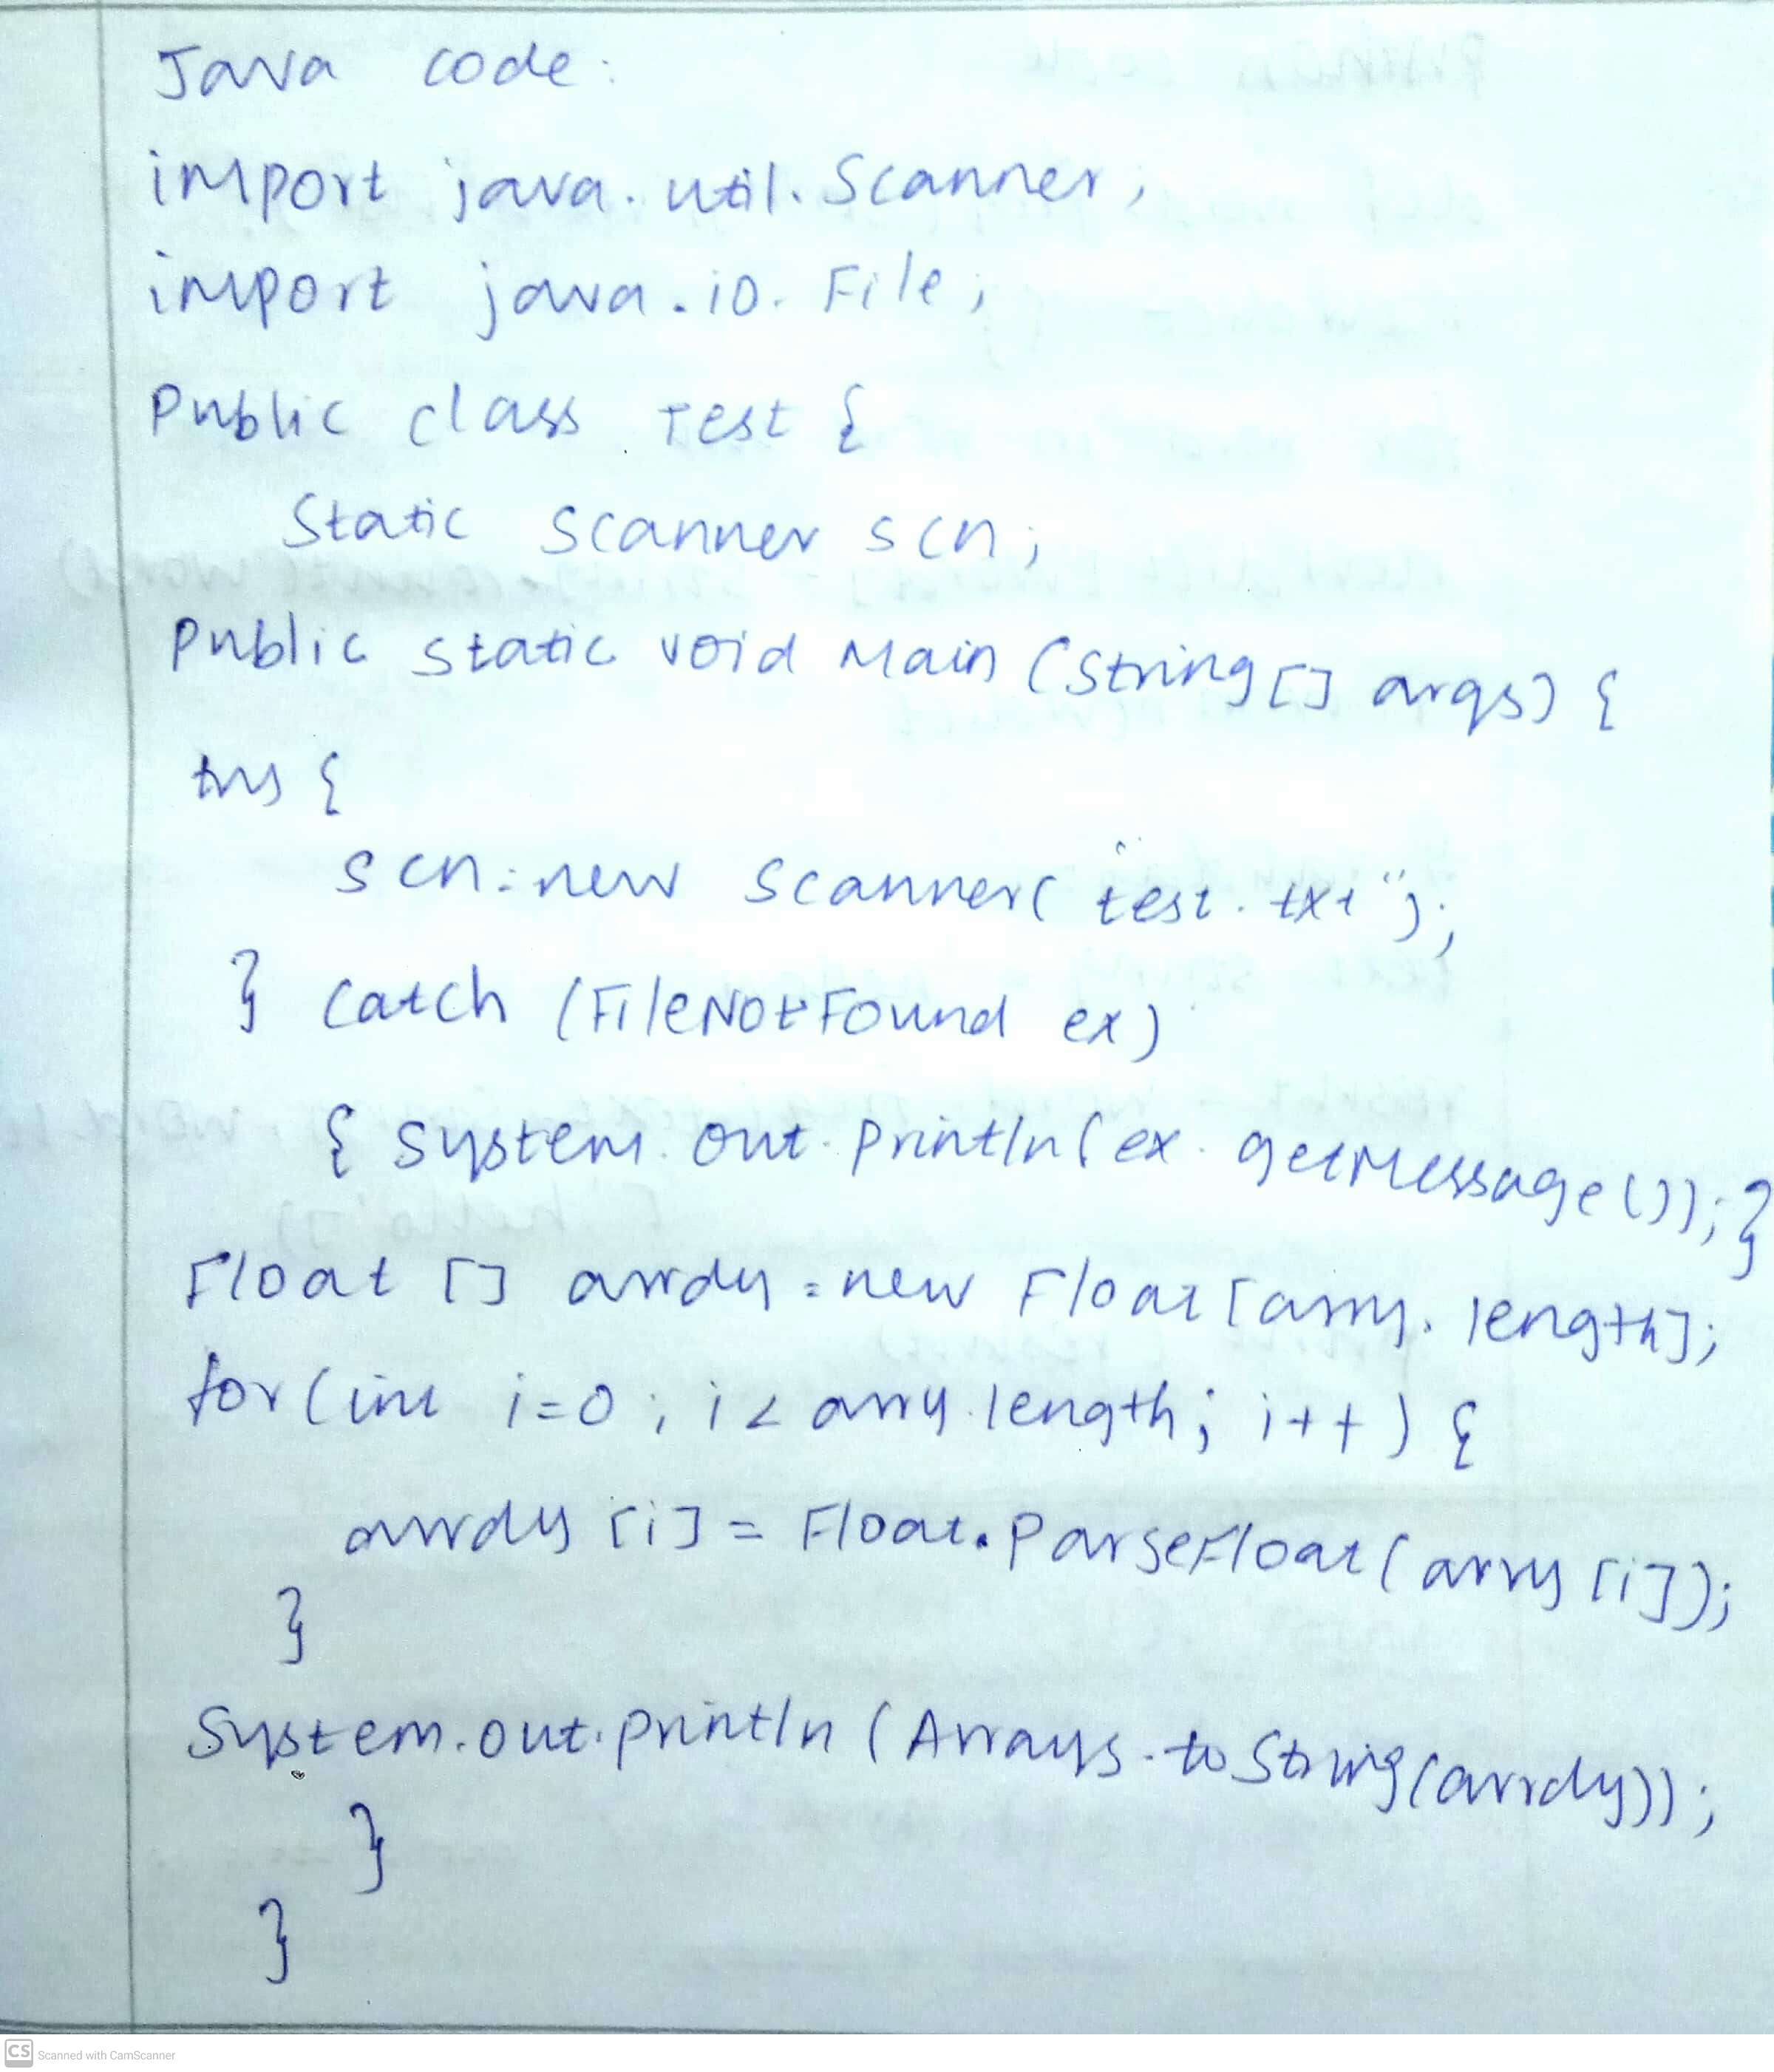 Java code:
import java.util.Scanner;
import java.io.File;
Public class Test {
Static Scanner scn;
Public static void Main (String[] args) {
try {
scn = new Scanner("test.txt");
} catch (FileNotFound ex)
{ System.out.println(ex.getMessage()); }
Float [] arrdy = new Float[arry.length];
for(int i=0; i< arry.length; i++) {
arrdy [i] = Float.ParseFloat(arry [i]);
}
System.out.println (Arrays.toString(arrdy));
}
}
CS Scanned with CamScanner